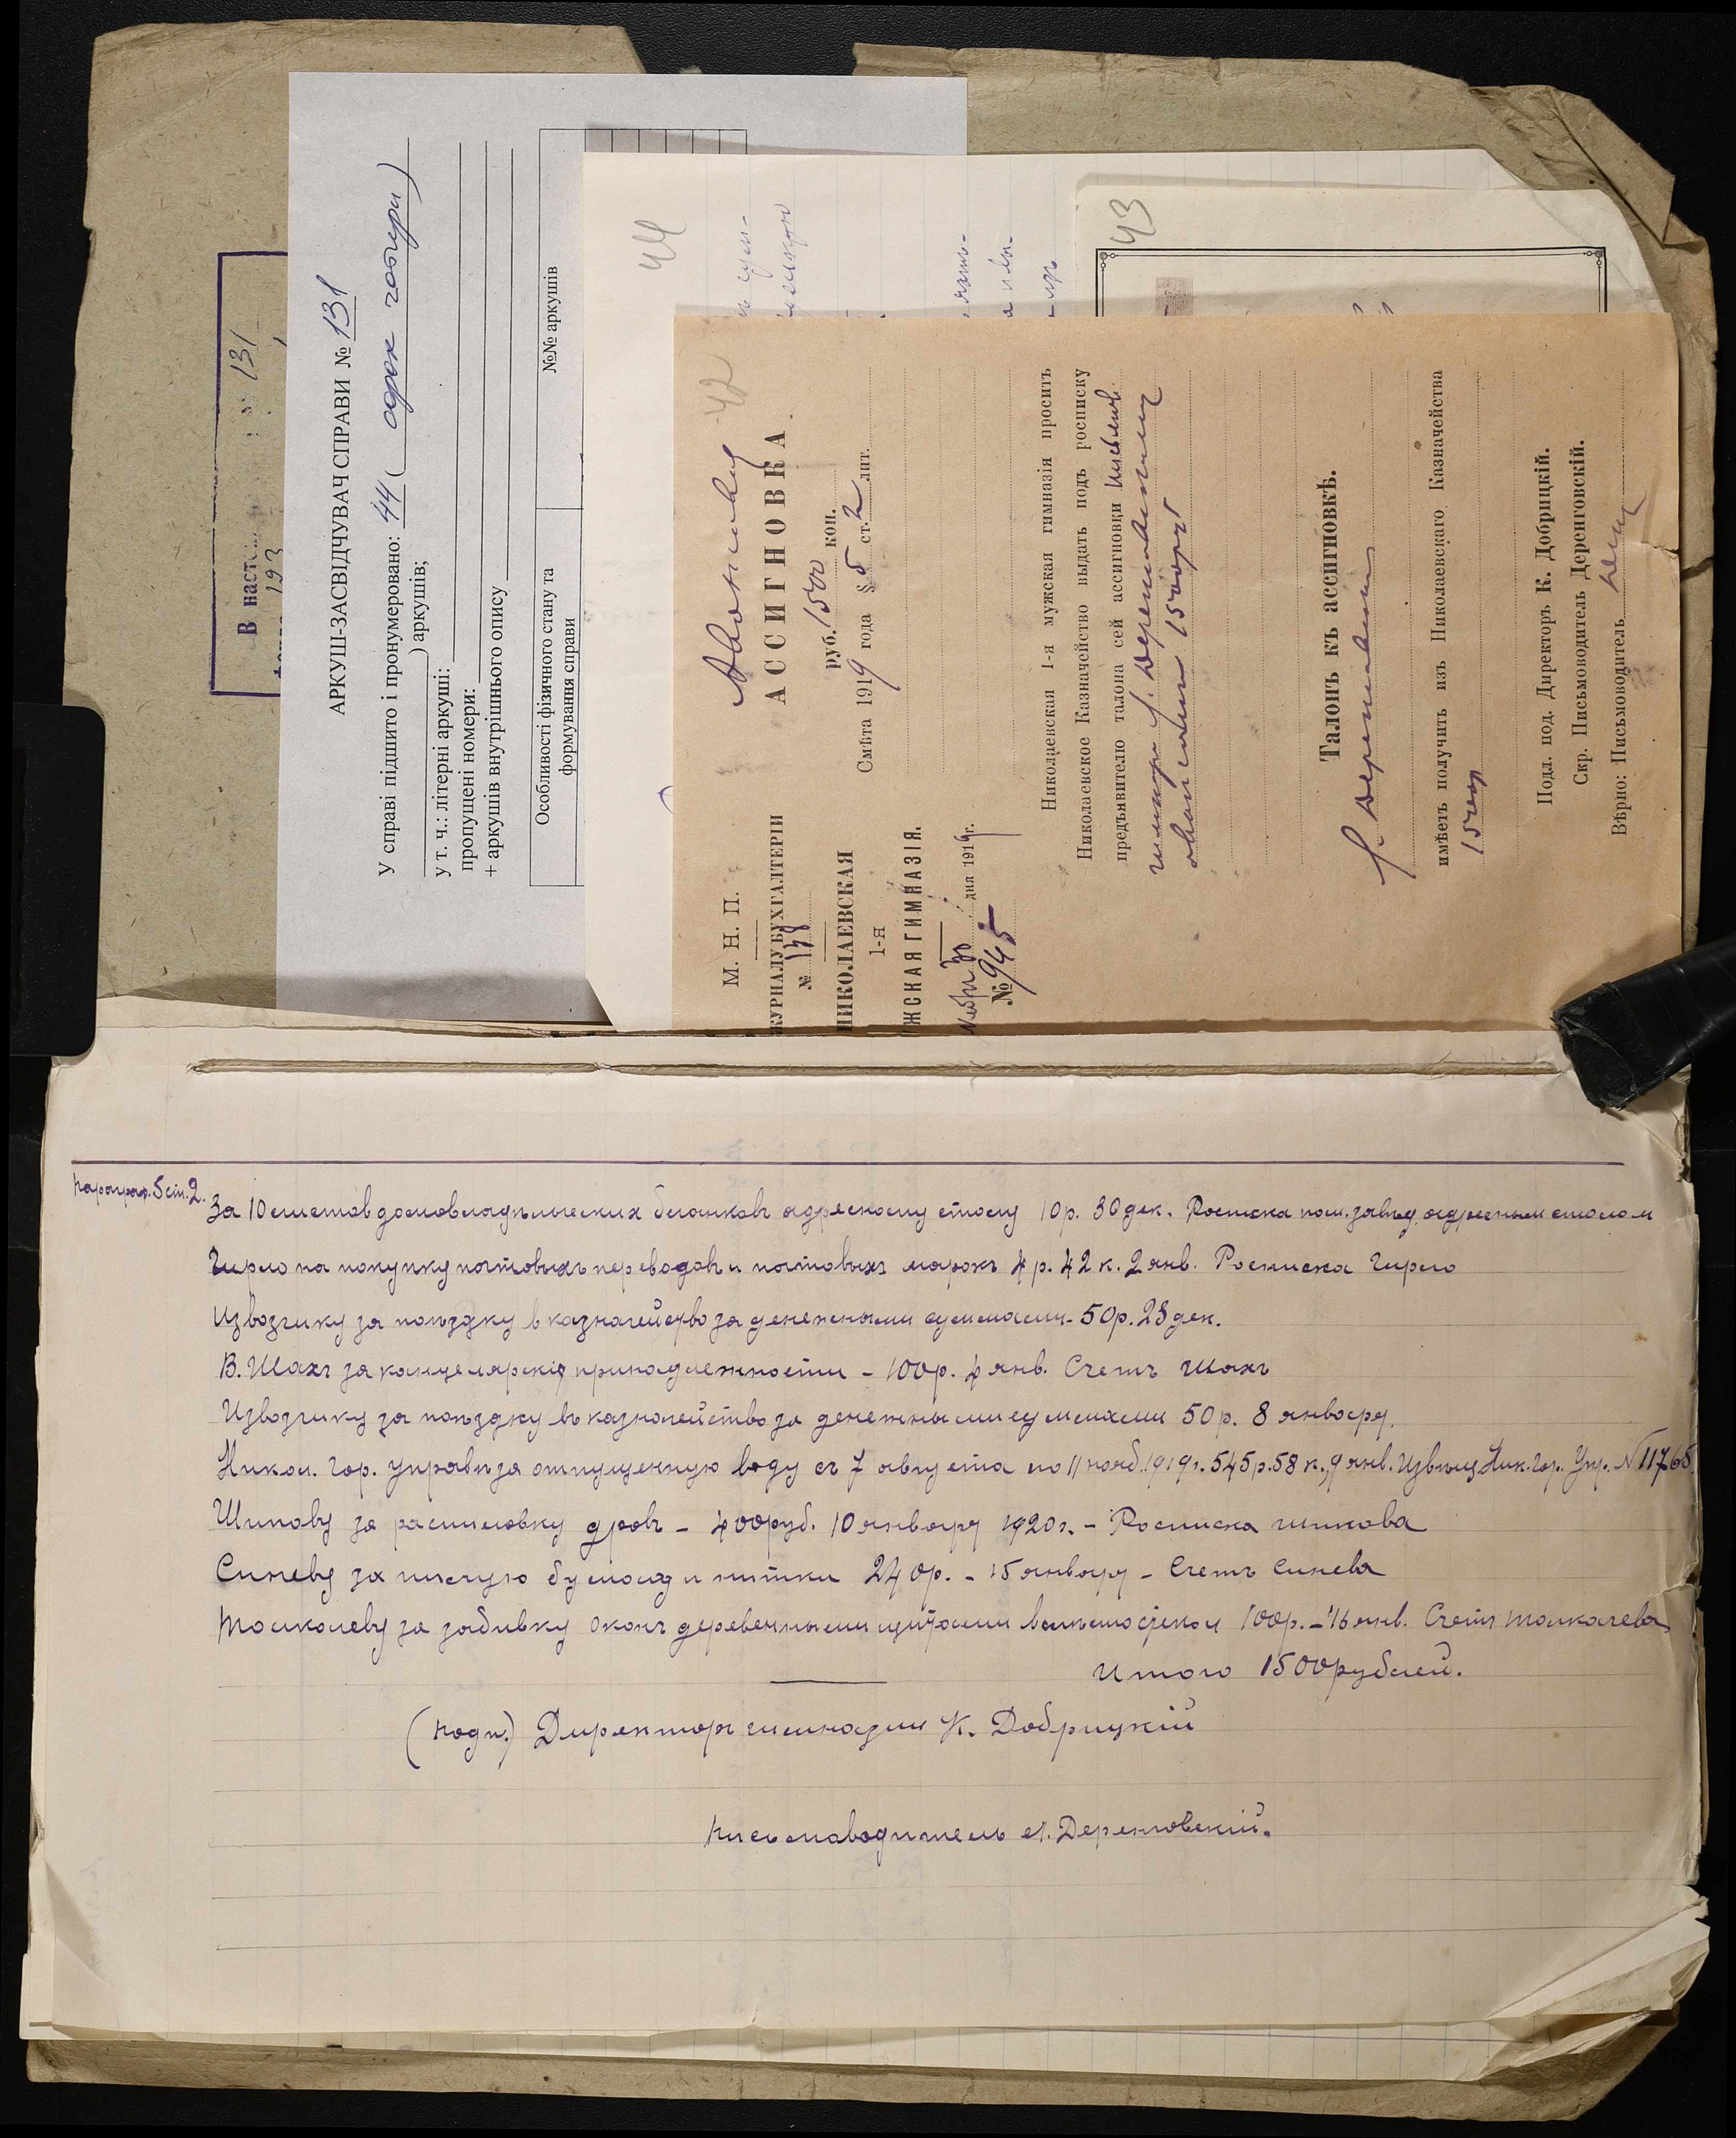 В насто
№ 131
193
АРКУШ-ЗАСВІДЧУВАЧ СПРАВИ № 131
У справі підшито і пронумеровано: 44 ( сорок чотири )
) аркушів;
у т. ч.: літерні аркуші:
пропущені номери:
+ аркушів внутрішнього опису
Особливості фізичного стану та
формування справи
№№ аркушів
44
43
42
М. Н. П.
ЖУРНАЛУ БУХГАЛТЕРІИ
№ 138
НИКОЛАЕВСКАЯ
1-я
ЖСКАЯ ГИМНАЗІЯ.
30 дня 1919 г.
№ 945
АССИГНОВКА.
руб. 1500 коп.
Смѣта 1919 года § 5 ст. 2 лит.
Николаевская 1-я мужская гимназія проситъ
Николаевское Казначейство выдать подъ росписку
предъявителю талона сей ассигновки
1500руб
Талонъ къ ассигновкѣ.
имѣетъ получить изъ Николаевскаго Казначейства
1500р
Подл. под. Директоръ К. Добрицкій.
Скр. Письмоводитель Деренговскій.
Вѣрно: Письмоводитель
параграф. 5 ст. 2.
За 10 листов домовладѣльческих бланковъ адресному столу 10р. 30 дек. Росписка завѣд. адресным столом
Гирло на покупку почтовыхъ переводовъ и почтовыхъ марокъ 4 р. 42 к. 2 янв. Росписка Гирло
Извозчику за поѣздку в казначейство за денежными суммами - 50р. 23 дек.
В. Шахъ за канцелярскія принадлежности - 100р. 4 янв. Счетъ Шахъ
Извозчику за поѣздку въ казначейство за денежными суммами 50 р. 8 января.
Никол. Гор. управѣ за отпущенную воду съ 7 августа по 11 нояб. 1919 г. 545 р. 58 к., 9 янв. Извѣщ. Ник. Гор. Упр. № 11768.
Шипову за распиловку дровъ - 400руб. 10 января 1920 г. - Росписка Шипова
Синеву за писчую бумагу и нитки 240р. - 15 января - Счетъ Синева
Толкачеву за забивку оконъ деревянными щитами вмѣсто стекол 100р. - 16 янв. Счетъ Толкачева
Итого 1500 рублей.
(подп.) Директоръ гимназии К. Добрицкій
Письмоводитель Деренговскій.